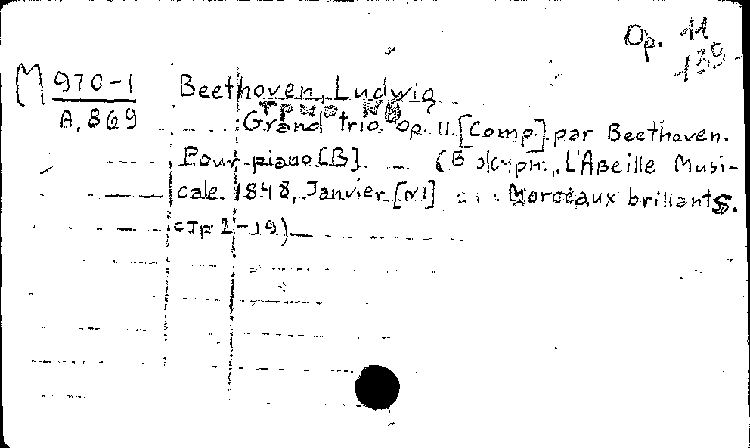 Op. 11
139
M 970-1
A. 869
Beethoven, Ludwig
Grand trio. Op. 11. [Comp.] par Beethoven.
Pour piano [B]. — (В кн.: L'Abeille Musi-
cale. 1848, Janvier [N1] Morceaux brillants.
стр 2-19)